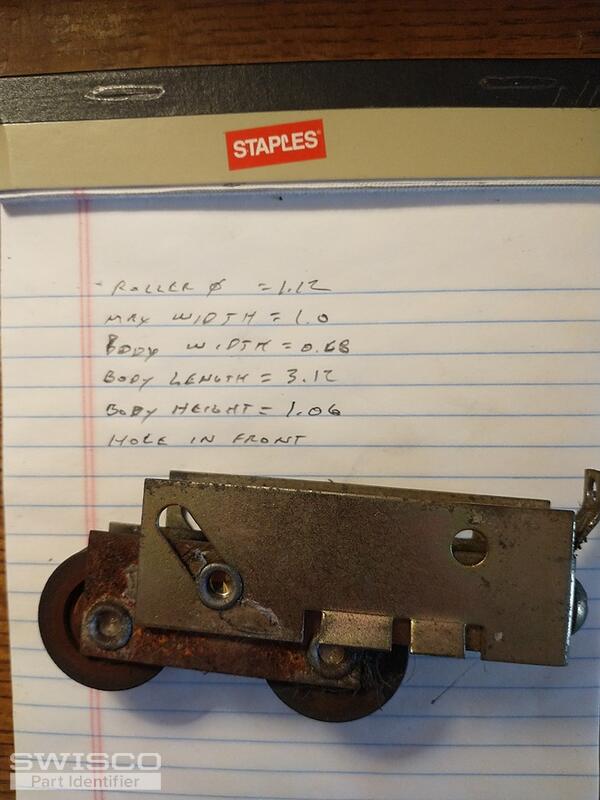 STAPLES
- ROLLER ∅ = 1.12
MAX WIDTH = 1.0
BODY WIDTH = 0.68
BODY LENGTH = 3.12
BODY HEIGHT = 1.06
HOLE IN FRONT
SWISCO
Part Identifier